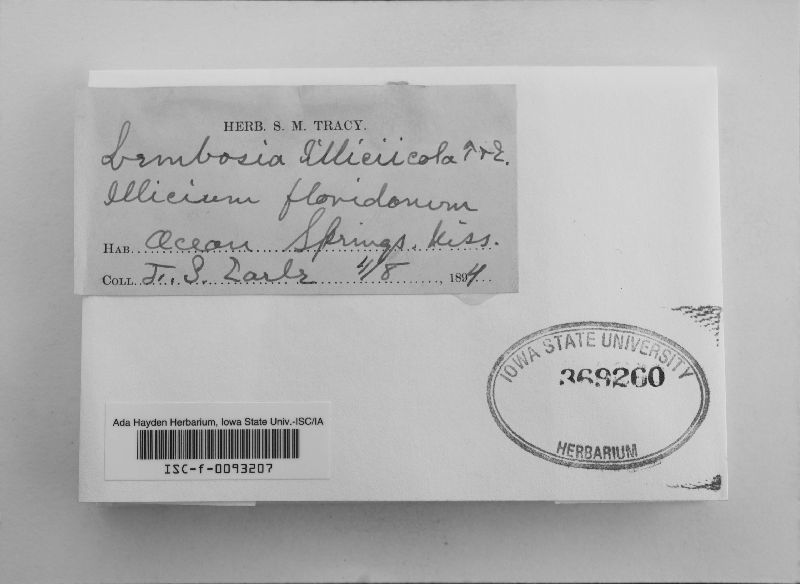 HERB. S. M. TRACY.
Lembosia illiciicola T & E.
Illicium floridanum
HAB. Ocean Springs, Miss.
COLL. F. S. Earle 4/8, 1894
IOWA STATE UNIVERSITY
369260
HERBARIUM
Ada Hayden Herbarium, Iowa State Univ.-ISC/IA
ISC-f-0093207